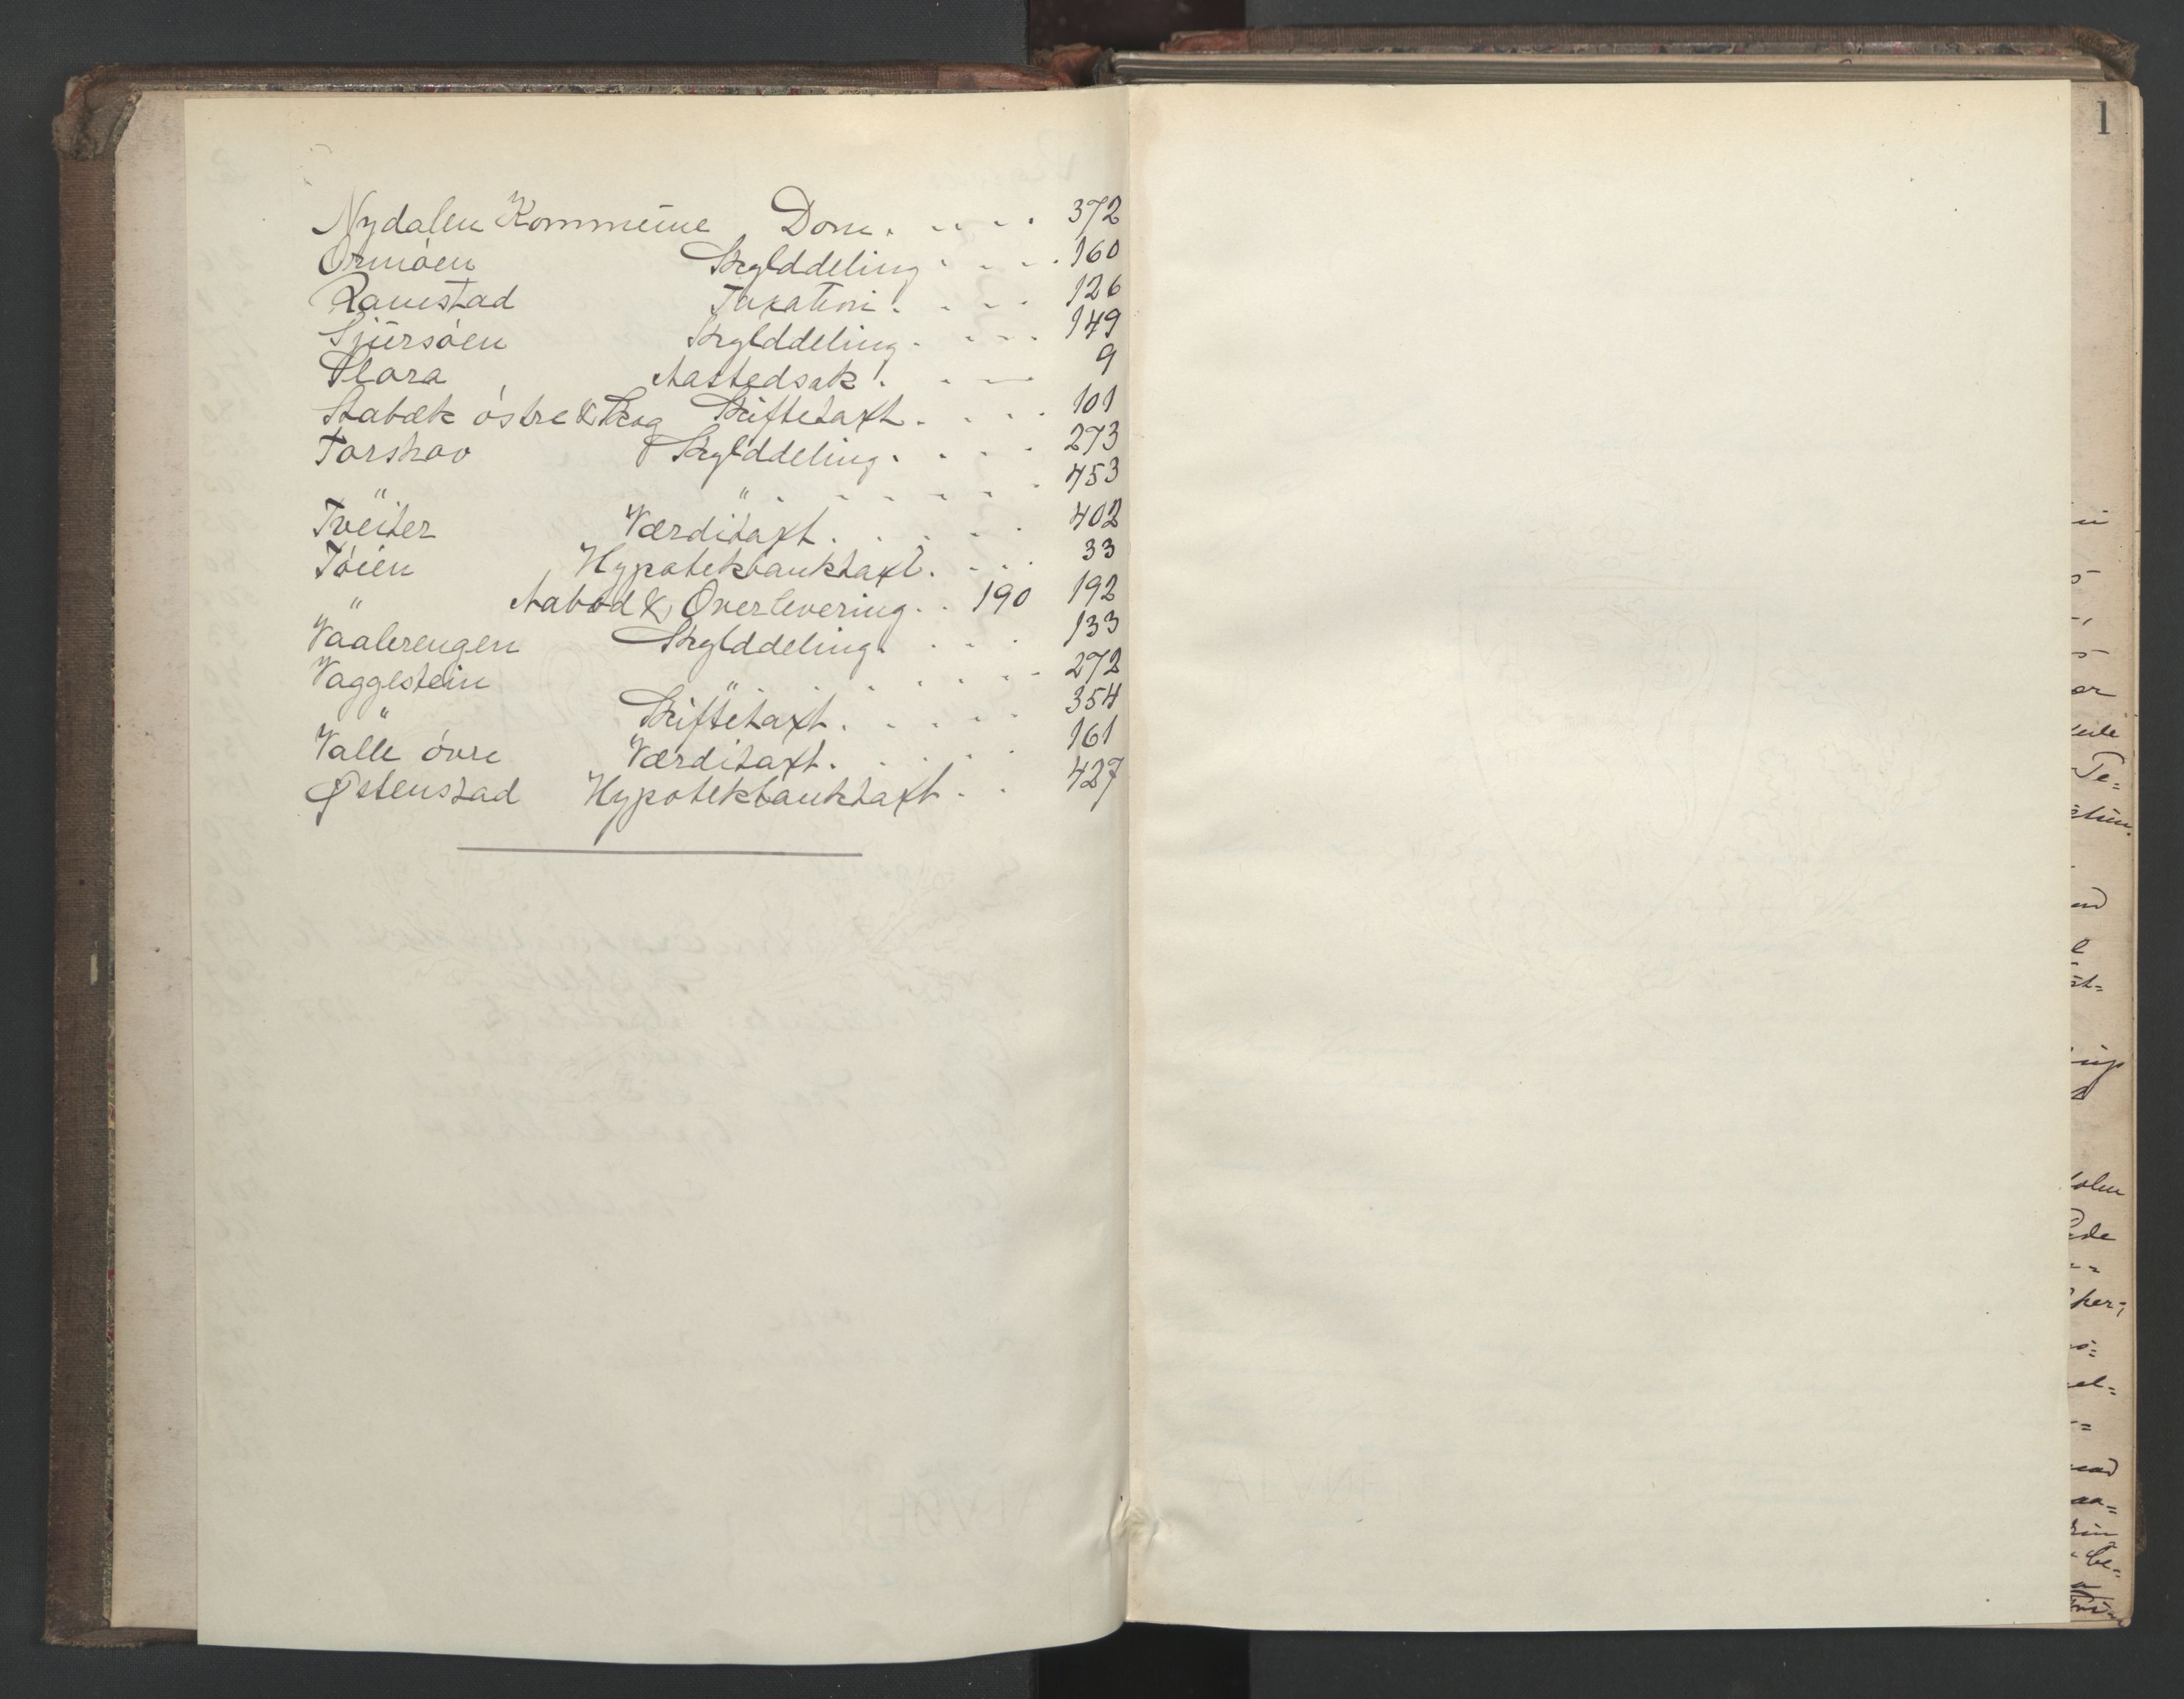 Nydalen Kommune Dom. . . . . 372
Ormöen Skylddeling . . . . 160
Ramstad Taxation. . . . 126
Sjursöen Skylddeling. . . . 149
Slora Aastedsak. . . 9
Stabæk östre & Skog Skiftetaxt. . . . 101
Torshov Skylddeling. . . . 273
" " . . . . . . 453
Tveiter Værditaxt. . . . . 402
Töien Hypotekbanktaxt. . . . 33
" Aabod & Overlevering. . 190 192
Vaalerengen Skylddeling. . . . 133
Vaggestein " . . . . . 272
" Skiftetaxt. . . . . 354
Valle övre Værditaxt. . . . . 161
Østenstad Hypotekbanktaxt. . 427
1